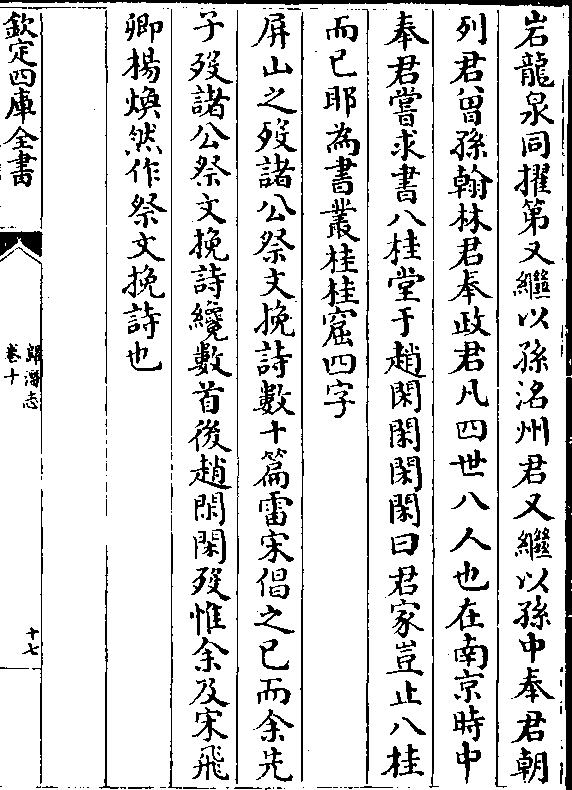 岩龍泉同擢第又繼以孫洺州君又繼以孫中奉君朝
列君曾孫翰林君奉政君凡四世八人也在南京時中
奉君嘗求書八桂堂于趙閑閑閑閑曰君家豈止八桂
而已耶為書叢桂桂窟四字
屏山之歿諸公祭文挽詩數十篇雷宋倡之已而余先
子歿諸公祭文挽詩纔數首後趙閑閑歿惟余及宋飛
卿楊煥然作祭文挽詩也
欽定四庫全書
歸潛志
卷十
十七